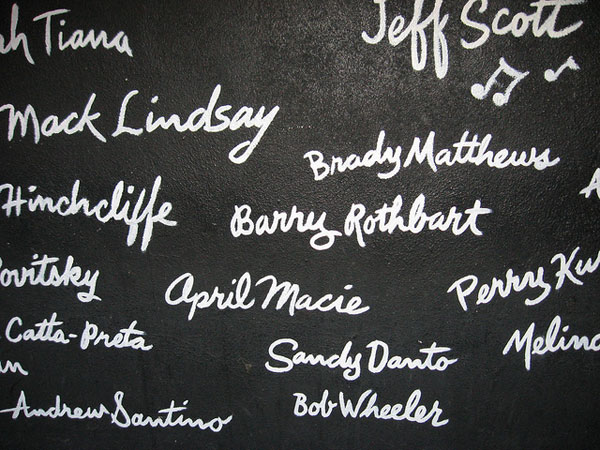 Tiana
Jeff Scott
Mack Lindsay
Brady Matthews
Hinchcliffe
Barry Rothbart
ovitsky
April Macie
Perry
Catta-Preta
Sandy Danto
Andrew Santino
Bob Wheeler